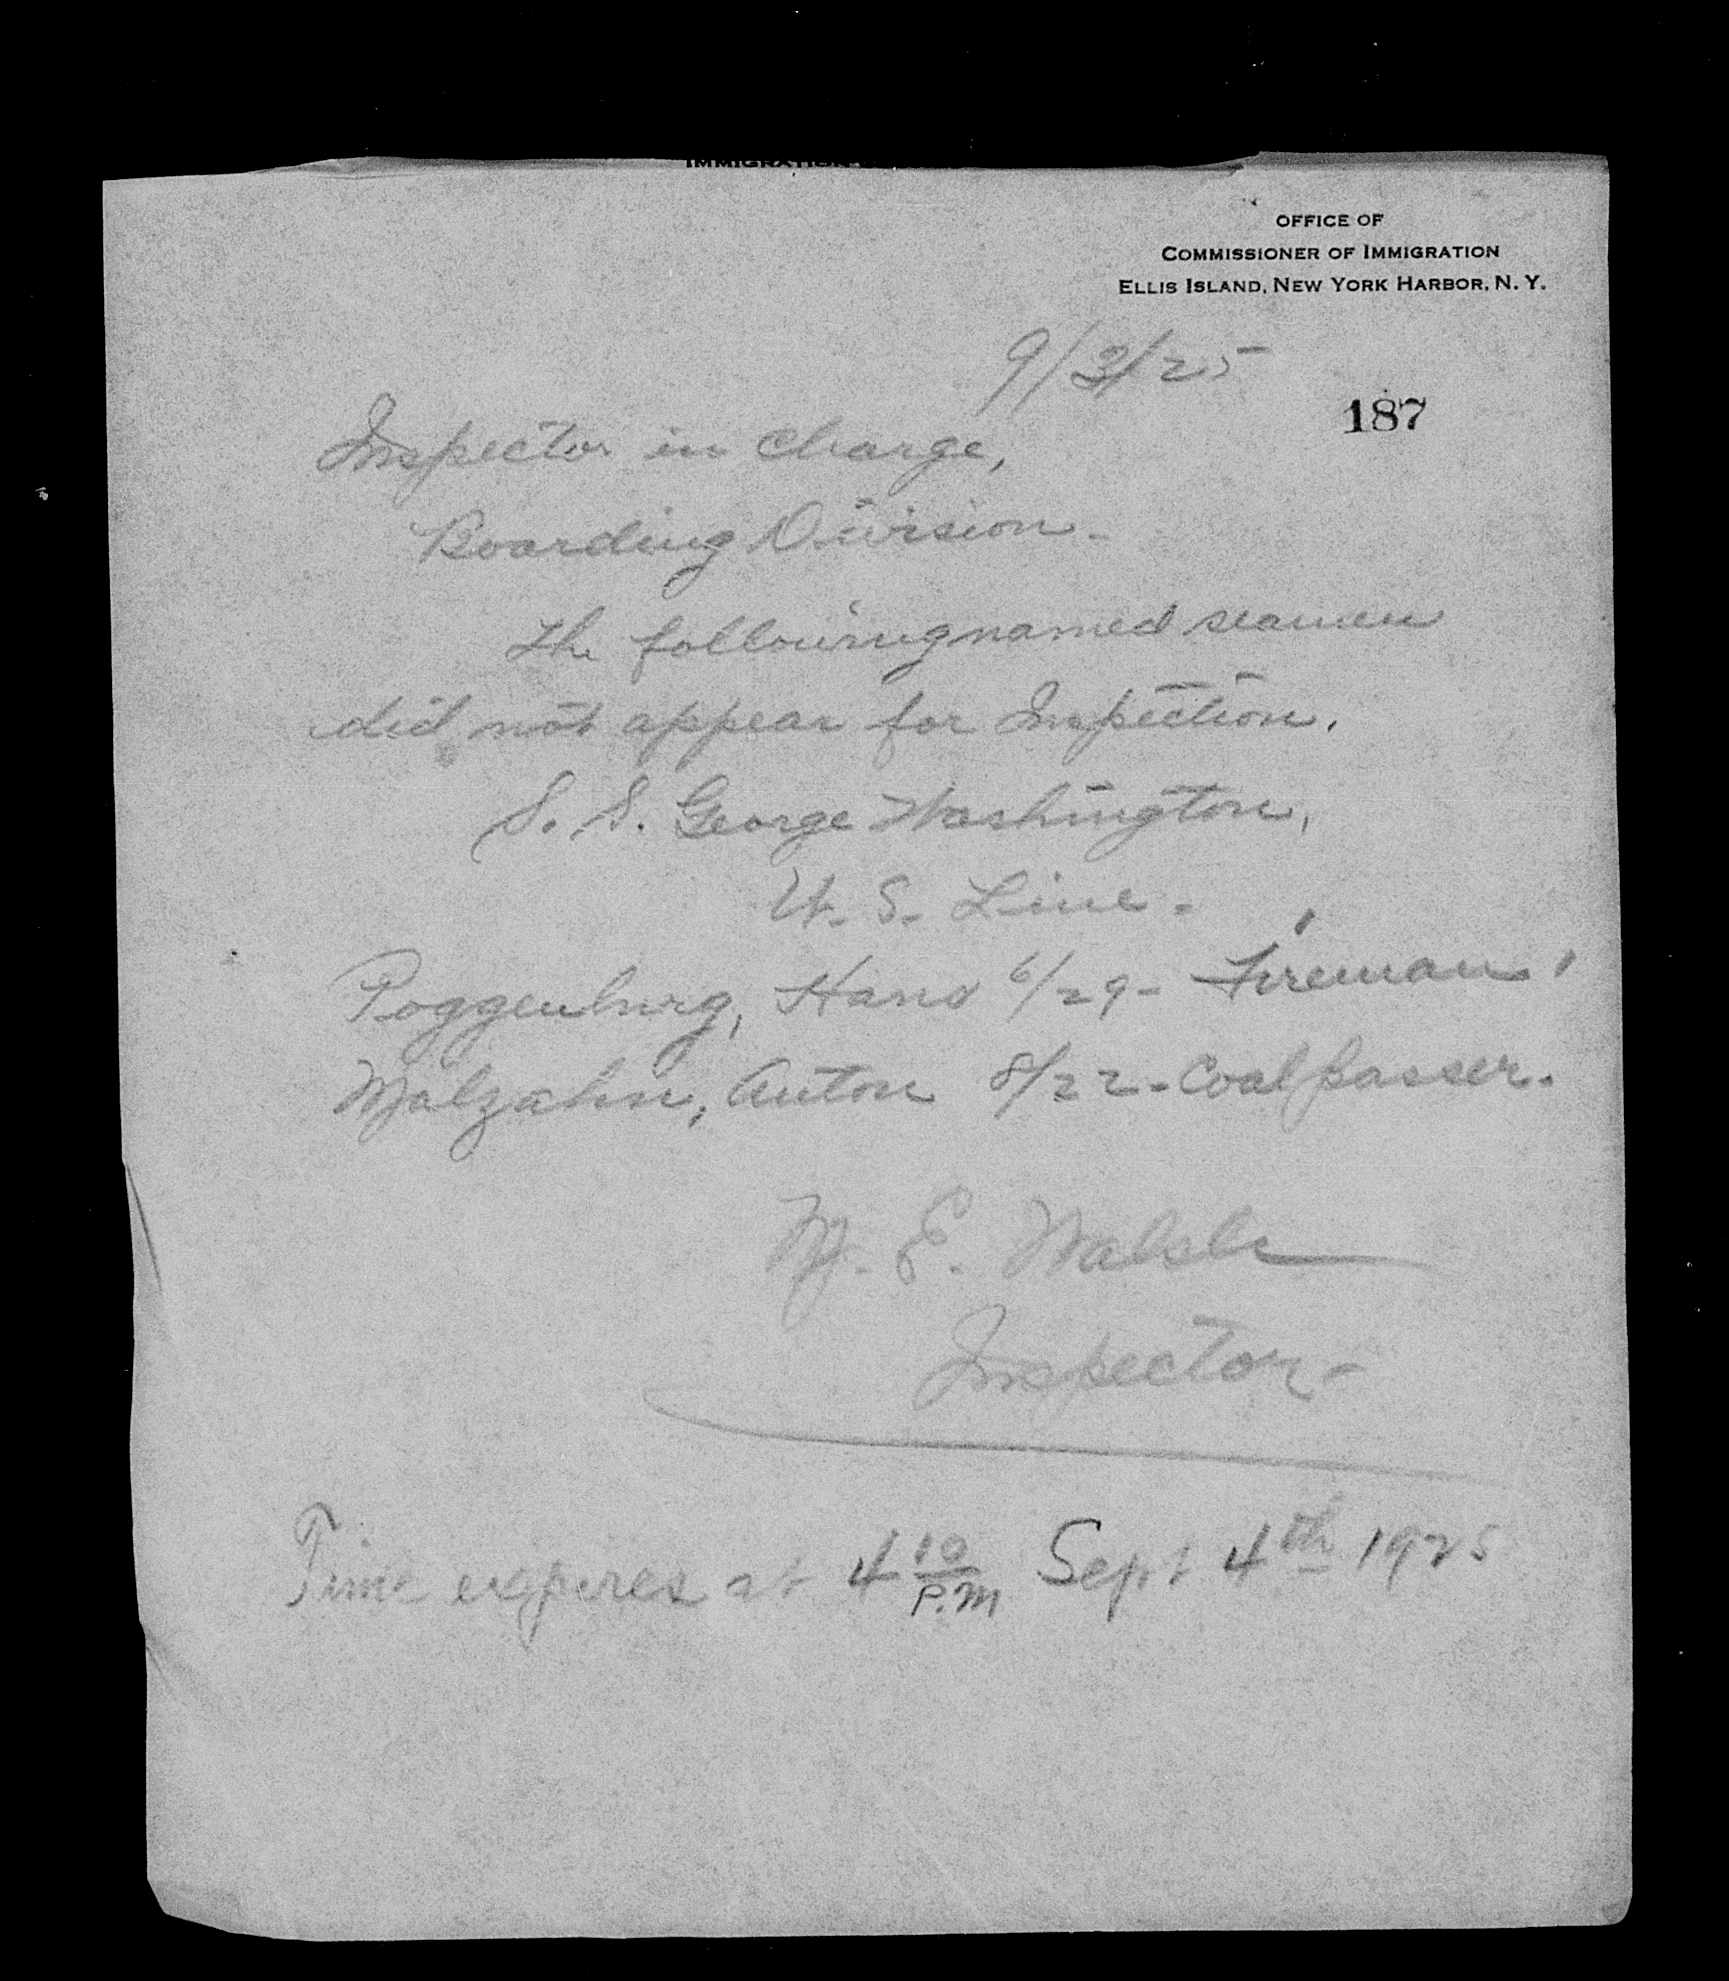 IMMIGRATION
OFFICE OF
COMMISSIONER OF IMMIGRATION
ELLIS ISLAND, NEW YORK HARBOR, N. Y.
9/3/25
187
Inspector in Charge,
Boarding Division.
The following named seamen
did not appear for Inspection.
S. S. George Washington,
U. S. Line.
Poggenburg, Hans 6/29 - Fireman.
Malzahn, Anton 8/22 - Coal passer.
M. E. Walsh
Inspector -
Time expires at 4 10 P.M Sept 4th 1925